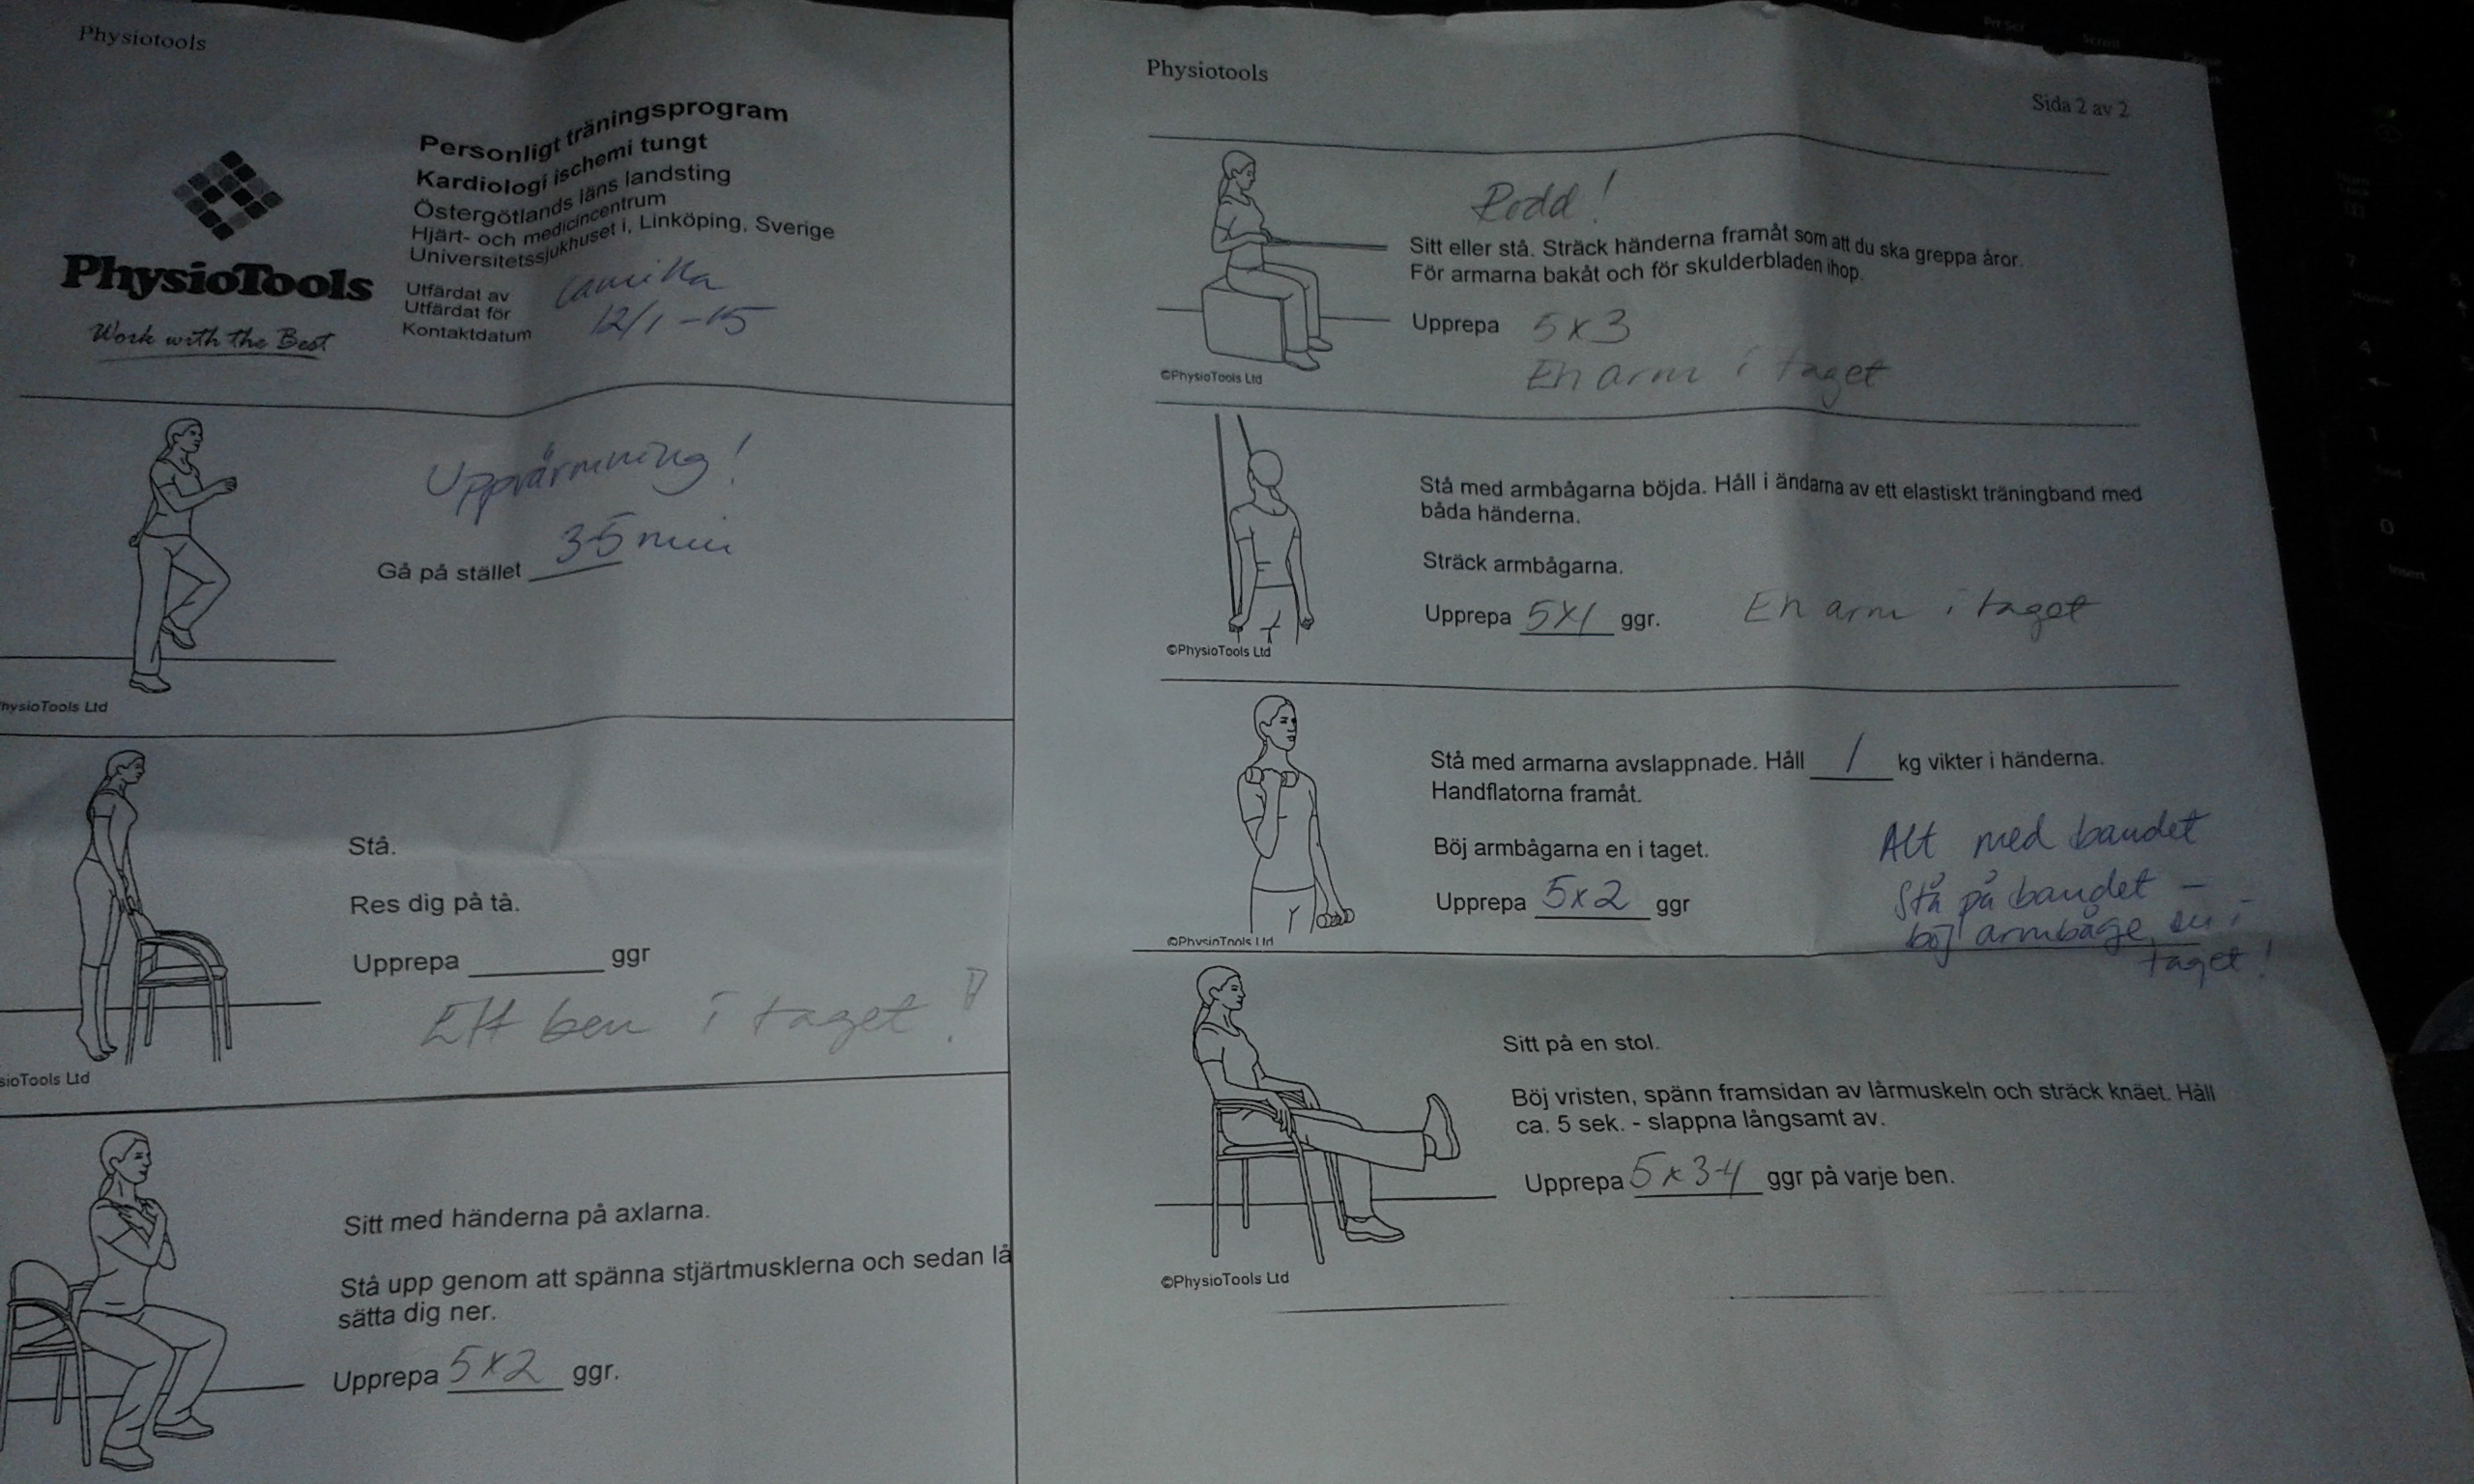 Physiotools
PhysioTools
Work with the Best
Personligt träningsprogram
Kardiologi ischemi tungt
Östergötlands läns landsting
Hjärt- och medicincentrum
Universitetssjukhuset i, Linköping, Sverige
Utfärdat av Camilla
Utfärdat för
Kontaktdatum 12/1 -15
Uppvärmning!
Gå på stället 3-5 min
hysioTools Ltd
Stå.
Res dig på tå.
Upprepa ggr
Ett ben i taget!
sioTools Ltd
Sitt med händerna på axlarna.
Stå upp genom att spänna stjärtmusklerna och sedan lå
sätta dig ner.
Upprepa 5x2 ggr.
Physiotools
Sida 2 av 2
Rodd!
Sitt eller stå. Sträck händerna framåt som att du ska greppa åror.
För armarna bakåt och för skulderbladen ihop.
Upprepa 5x3
En arm i taget
©PhysioTools Ltd
Stå med armbågarna böjda. Håll i ändarna av ett elastiskt träningband med
båda händerna.
Sträck armbågarna.
Upprepa 5x1 ggr. En arm i taget
©PhysioTools Ltd
Stå med armarna avslappnade. Håll 1 kg vikter i händerna.
Handflatorna framåt.
Böj armbågarna en i taget.
Upprepa 5x2 ggr
Alt med bandet
Stå på bandet -
böj armbåge en i
taget!
©PhysioTools Ltd
Sitt på en stol.
Böj vristen, spänn framsidan av lårmuskeln och sträck knäet. Håll
ca. 5 sek. - slappna långsamt av.
Upprepa 5x3-4 ggr på varje ben.
©PhysioTools Ltd